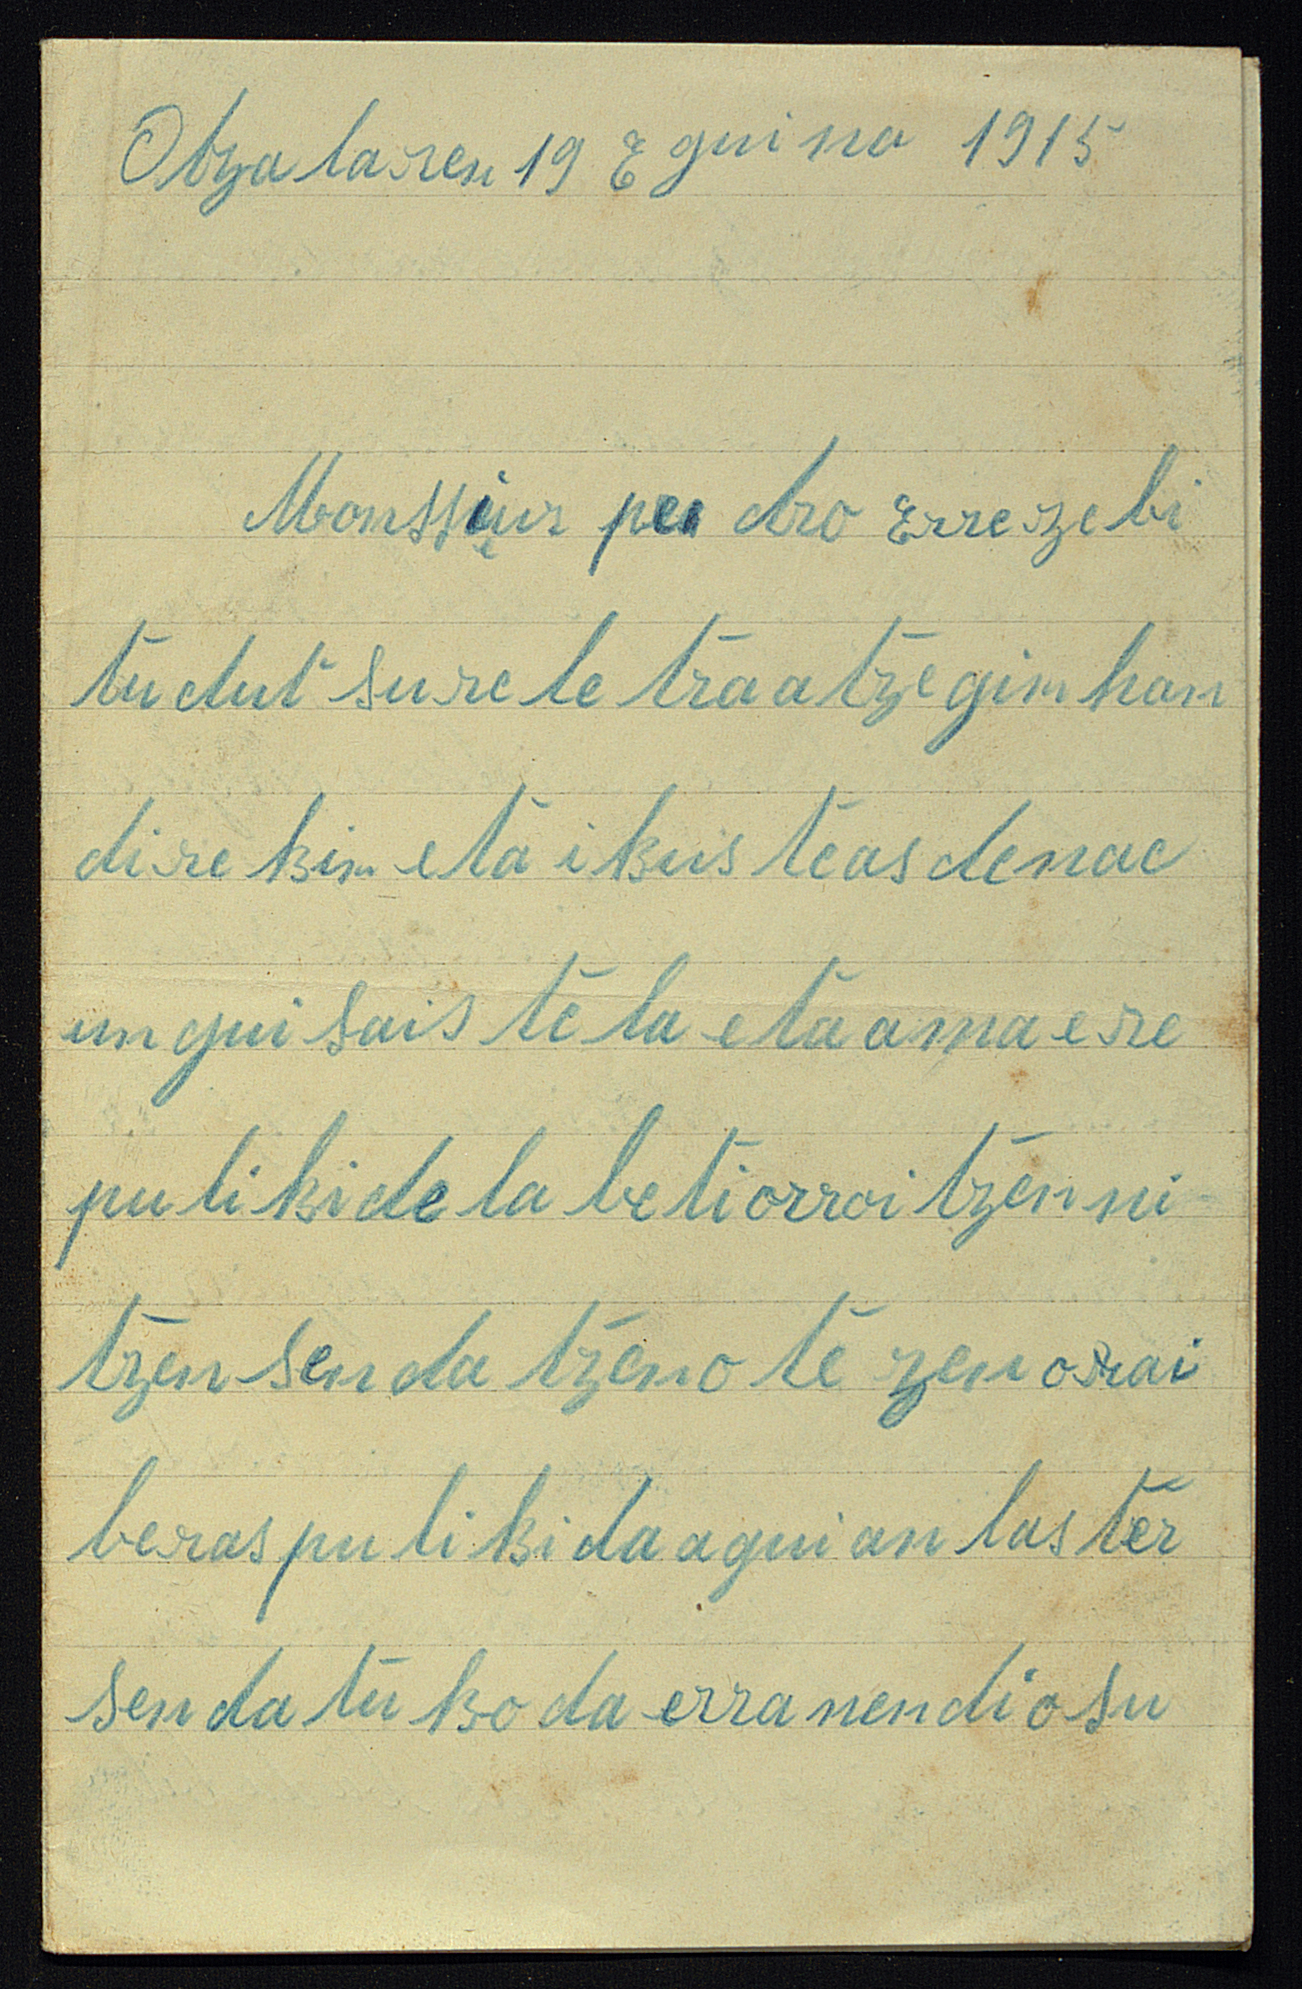 Otzalaren 19 Eguina 1915
Monssiur pedro Errezebi
tudut sure letra atzegin han
direkin eta ikusteas denac
ungui saistela eta ama ere
pulikidela beti orroitzen ni
tzen sendatzeno tezen orai
beras puliki da aguian laster
sendatuko da erranendiosu